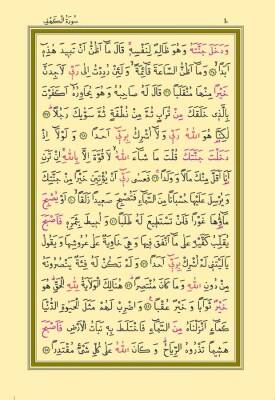 سُورَةُ الْكَهْفِ
وَدَخَلَ جَنَّتَهُ وَهُوَ ظَالِمٌ لِنَفْسِهِ ۚ قَالَ مَٓا اَظُنُّ اَنْ تَبِيدَ هٰذِهِٓ
اَبَدًا ۙ وَمَٓا اَظُنُّ السَّاعَةَ قَٓائِمَةً ۙ وَلَئِنْ رُدِدْتُ اِلٰى رَبّ۪ي لَاَجِدَنَّ
خَيْرًا مِنْهَا مُنْقَلَبًا ۚ قَالَ لَهُ صَاحِبُهُ وَهُوَ يُحَاوِرُهُٓ اَكَفَرْتَ
بِالَّذ۪ي خَلَقَكَ مِنْ تُرَابٍ ثُمَّ مِنْ نُطْفَةٍ ثُمَّ سَوّٰيكَ رَجُلًا ۜ
لٰكِنَّا هُوَ اللّٰهُ رَبّ۪ي وَلَٓا اُشْرِكُ بِرَبّ۪ٓي اَحَدًا وَلَوْلَٓا اِذْ
دَخَلْتَ جَنَّتَكَ قُلْتَ مَا شَٓاءَ اللّٰهُ ۙ لَا قُوَّةَ اِلَّا بِاللّٰهِ ۚ اِنْ تَرَنِ
اَنَا اَقَلَّ مِنْكَ مَالًا وَوَلَدًا ۚ فَعَسٰى رَبّ۪ٓي اَنْ يُؤْتِيَنِ خَيْرًا مِنْ جَنَّتِكَ
وَيُرْسِلَ عَلَيْهَا حُسْبَانًا مِنَ السَّمَٓاءِ فَتُصْبِحَ صَع۪يدًا زَلَقًا ۙ اَوْ يُصْبِحَ
مَٓاؤُ۬هَا غَوْرًا فَلَنْ تَسْتَط۪يعَ لَهُ طَلَبًا وَاُح۪يطَ بِثَمَرِه۪ فَاَصْبَحَ
يُقَلِّبُ كَفَّيْهِ عَلٰى مَٓا اَنْفَقَ ف۪يهَا وَهِيَ خَاوِيَةٌ عَلٰى عُرُوشِهَا وَيَقُولُ
يَا لَيْتَن۪ي لَمْ اُشْرِكْ بِرَبّ۪ٓي اَحَدًا وَلَمْ تَكُنْ لَهُ فِئَةٌ يَنْصُرُونَهُ
مِنْ دُونِ اللّٰهِ وَمَا كَانَ مُنْتَصِرًا ۜ هُنَالِكَ الْوَلَايَةُ لِلّٰهِ الْحَقِّ ۜ هُوَ
خَيْرٌ ثَوَابًا وَخَيْرٌ عُقْبًا ۟ وَاضْرِبْ لَهُمْ مَثَلَ الْحَيٰوةِ الدُّنْيَا
كَمَٓاءٍ اَنْزَلْنَاهُ مِنَ السَّمَٓاءِ فَاخْتَلَطَ بِه۪ نَبَاتُ الْاَرْضِ فَاَصْبَحَ
هَش۪يمًا تَذْرُوهُ الرِّيَاحُ ۜ وَكَانَ اللّٰهُ عَلٰى كُلِّ شَيْءٍ مُقْتَدِرًا